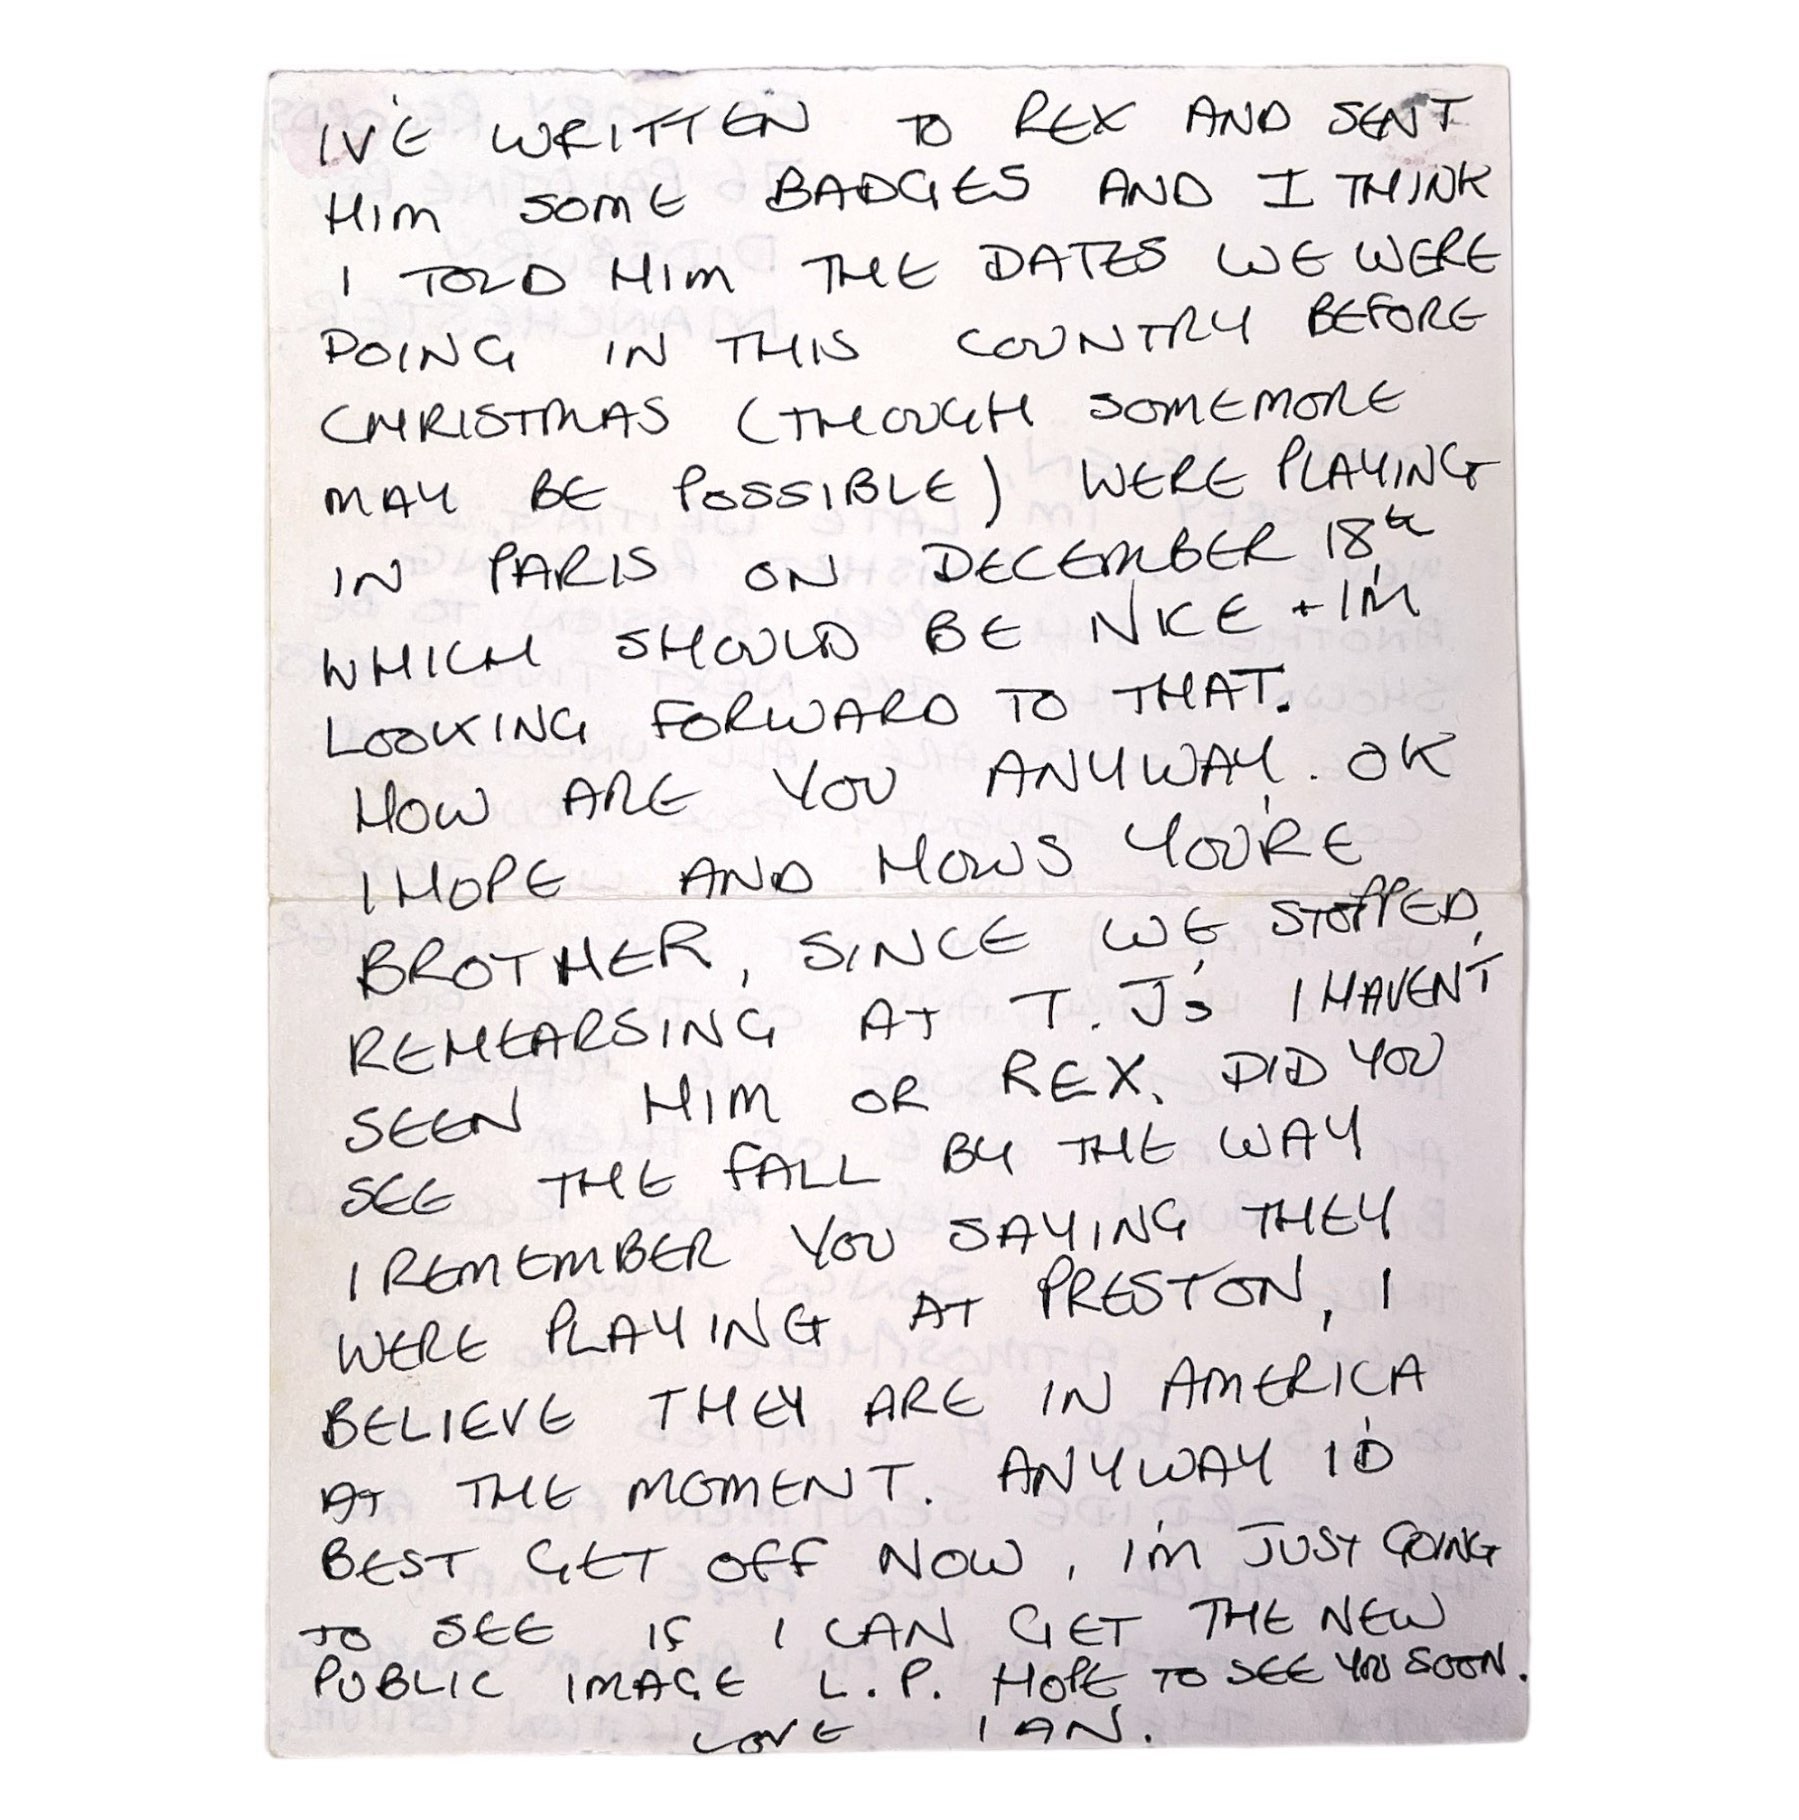 IV'E WRITTEN TO REX AND SENT
HIM SOME BADGES AND I THINK
I TOLD HIM THE DATES WE WERE
DOING IN THIS COUNTRY BEFORE
CHRISTMAS (THOUGH SOMEMORE
MAY BE POSSIBLE) WERE PLAYING
IN PARIS ON DECEMBER 18th
WHICH SHOULD BE NICE + I'M
LOOKING FORWARD TO THAT.
HOW ARE YOU ANYWAY. OK
I HOPE AND HOWS YOU'RE
BROTHER, SINCE WE STOPPED,
REHEARSING AT T.J's I HAVEN'T
SEEN HIM OR REX. DID YOU
SEE THE FALL BY THE WAY
I REMEMBER YOU SAYING THEY
WERE PLAYING AT PRESTON, I
BELIEVE THEY ARE IN AMERICA
AT THE MOMENT. ANYWAY I'D
BEST GET OFF NOW, I'M JUST GOING
TO SEE IF I CAN GET THE NEW
PUBLIC IMAGE L.P. HOPE TO SEE YOU SOON.
LOVE IAN.